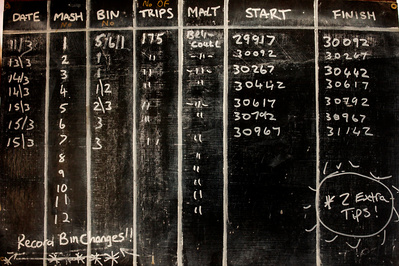 No OF
DATE MASH BIN TRIPS MALT START FINISH
No
11/3 1 5/6/1 175 29917 30092
13/3 2 1 " -"- 30092 30267
14/3 3 1 " -"- 30267 30442
14/3 4 1\2 " -"- 30442 30617
15/3 5 2\3 " " 30617 30792
15/3 6 3 " " 30792 30967
15/3 7 3 " " 30967 31142
8 "
9 "
10 "
11 "
12 "
* 2 Extra
Tips!
Record Bin Changes!!